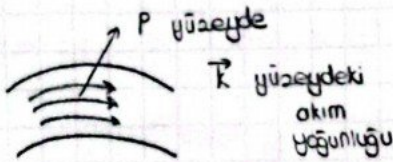 P yüzeyde
K yüzeydeki
akım
yoğunluğu